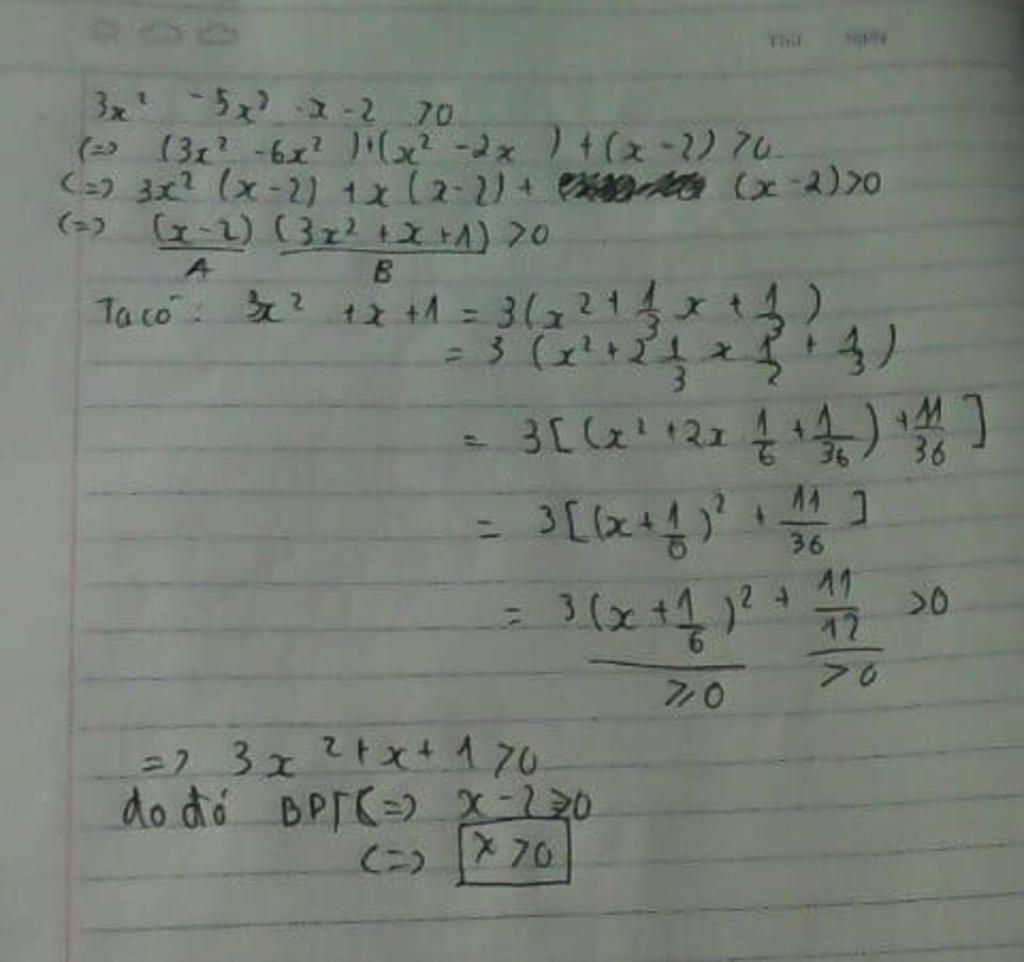 Thứ Ngày
3x² - 5x² - x - 2 > 0
(=) (3x² - 6x²) + (x² - 2x) + (x - 2) > 0
(=) 3x² (x - 2) + x (x - 2) + (x - 2) > 0
(=) (x - 2) (3x² + x + 1) > 0
A B
Ta có: 3x² + x + 1 = 3(x² + 1/3 x + 1/3)
= 3 (x² + 2 1/3 x 1/2 + 1/3)
= 3[(x² + 2x 1/6 + 1/36) + 11/36]
= 3[(x + 1/6)² + 11/36]
= 3(x + 1/6)² + 11/12 > 0
≥ 0 > 0
=> 3x² + x + 1 > 0
do đó BPT (=) x - 2 ≥ 0
(=) x > 0